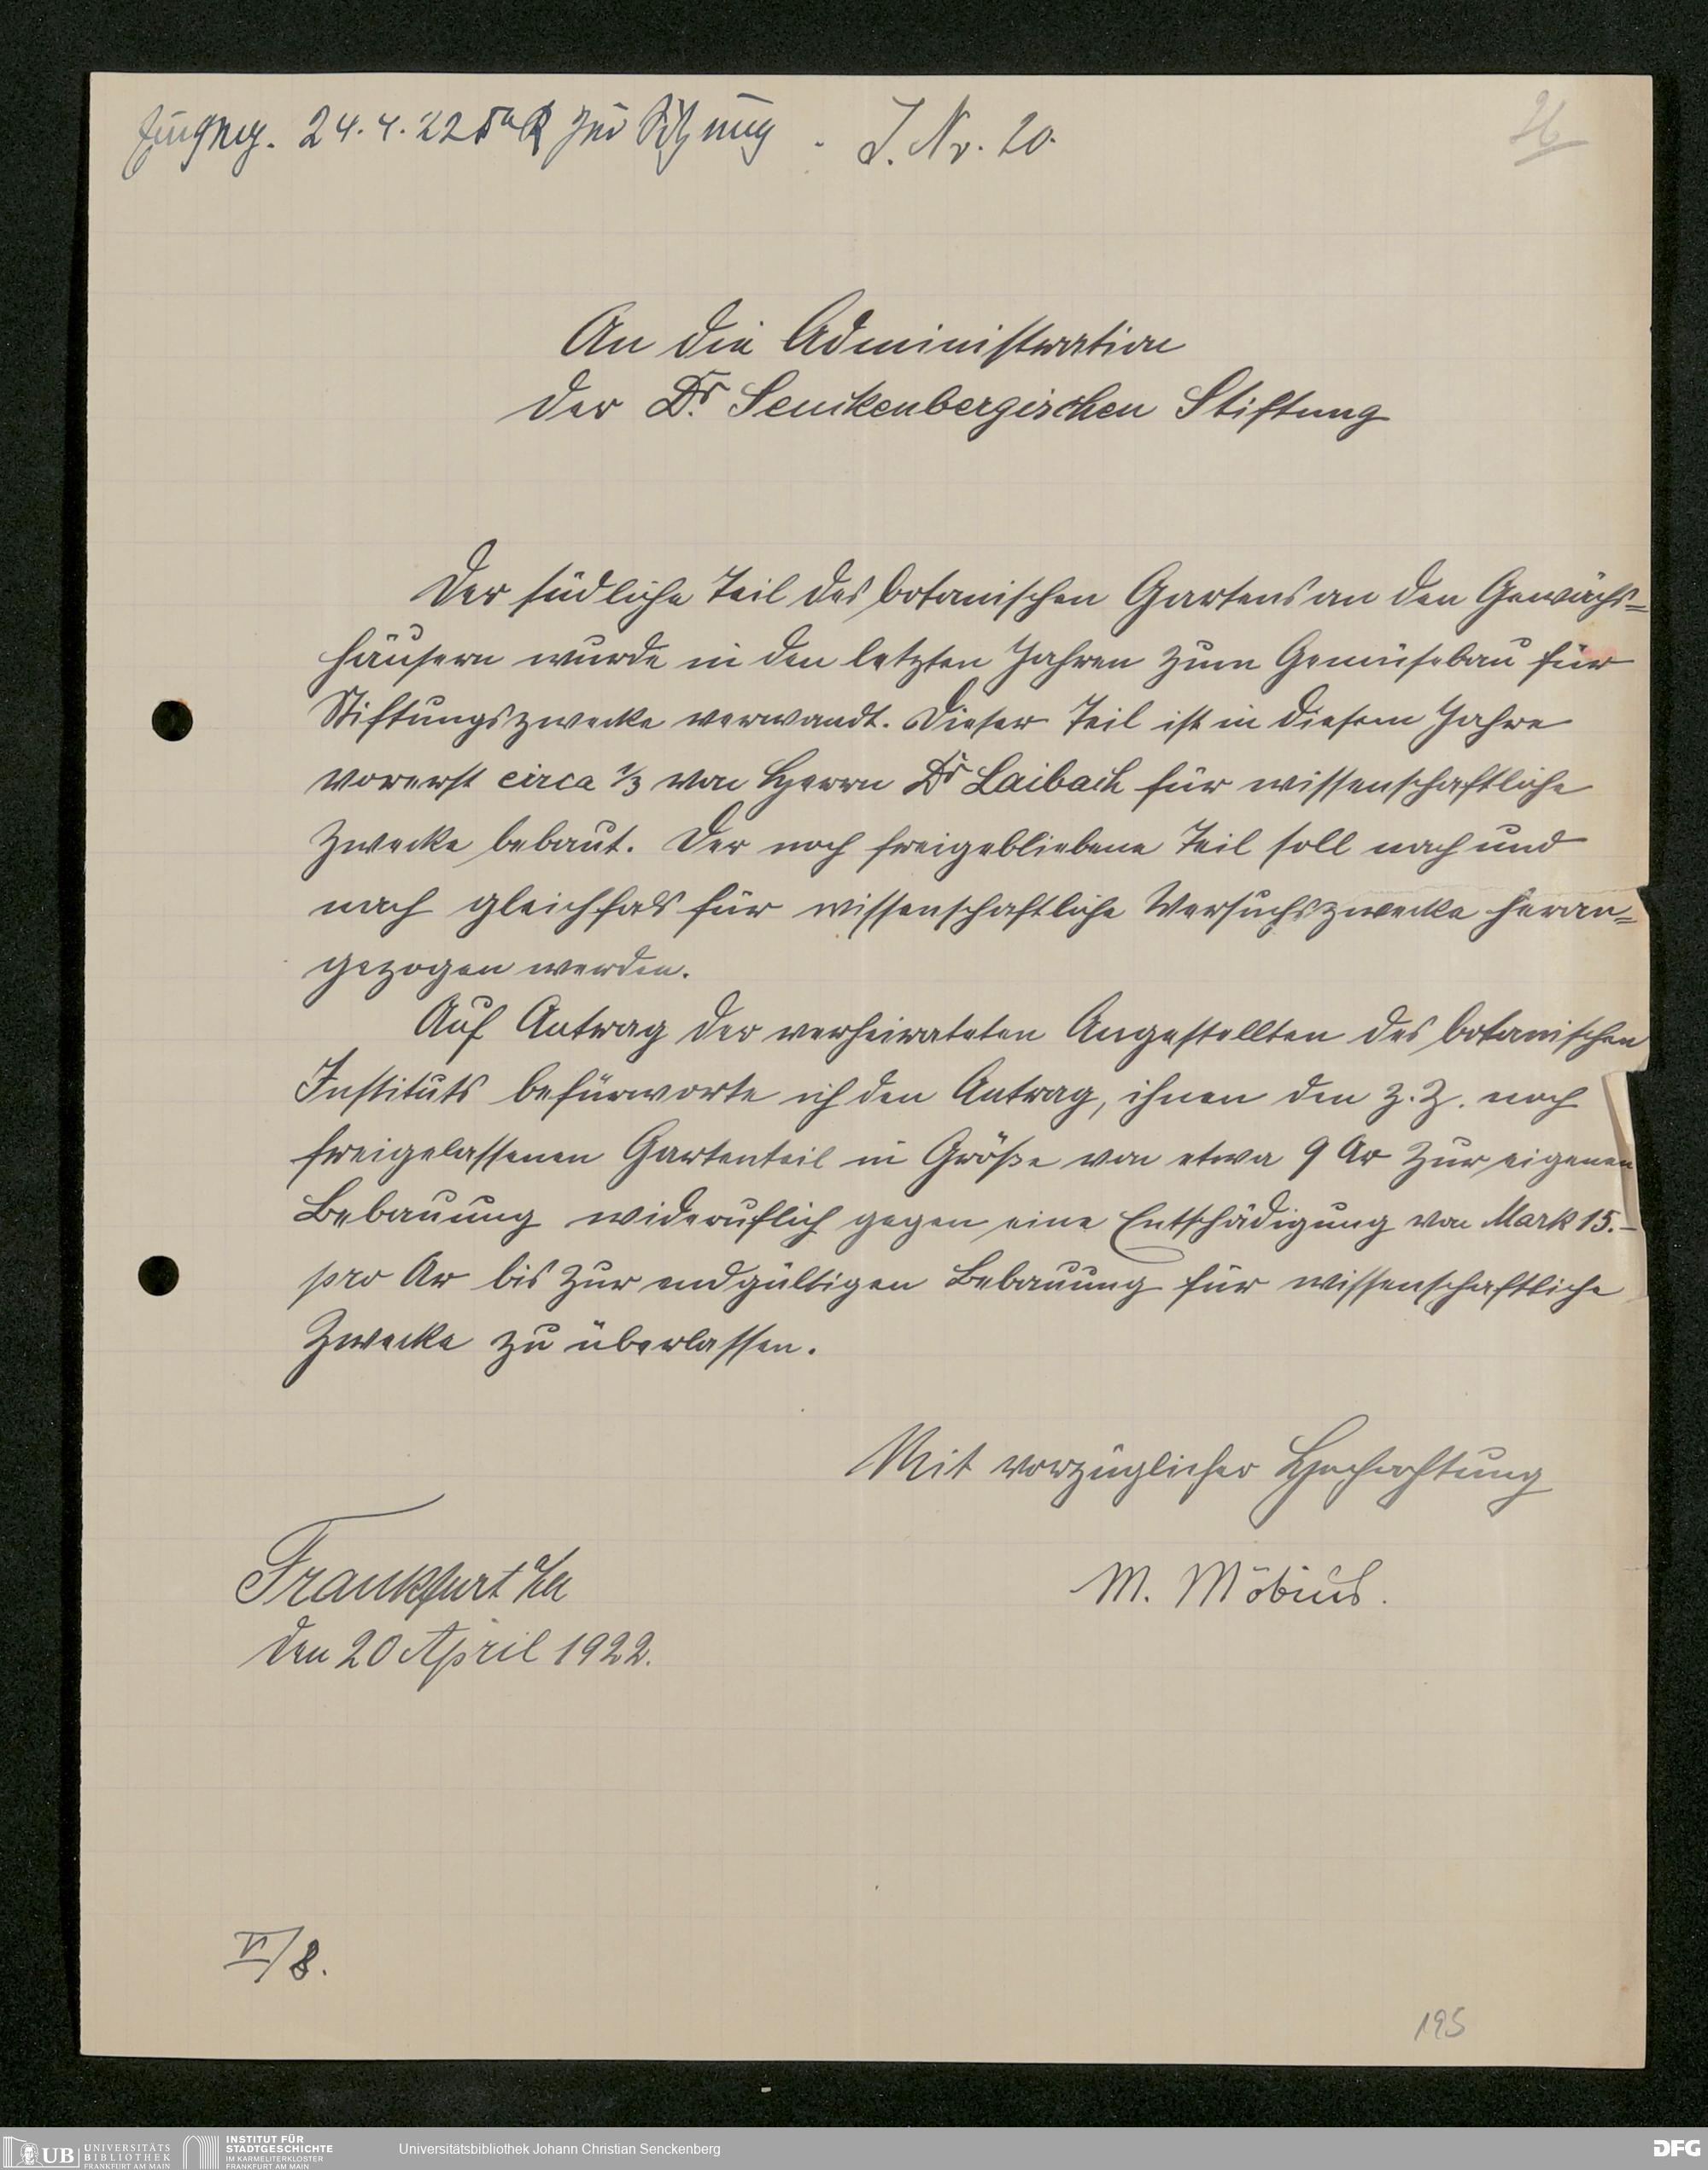 Eingeg. 24.4.22 zur Sitzung. J. Nr. 20.
26
An die Administration
der Dr. Senckenbergischen Stiftung
Der südliche Teil des botanischen Gartens an den Gewächs=
häusern wurde in den letzten Jahren zum Gemüsebau für
Stiftungszwecke verwandt. Dieser Teil ist in diesem Jahre
vorerst circa ⅓ von Herrn Dr Laibach für wissenschaftliche
Zwecke bebaut. Der noch freigebliebene Teil soll nach und
nach gleichfals für wissenschaftliche Versuchszwecke heran=
gezogen werden.
Auf Antrag der verheirateten Angestellten des botanischen
Instituts befürworte ich den Antrag, ihnen den z. Z. noch
freigelassenen Gartenteil in Größe von etwa 9 Ar zur eigenen
Bebauung wideruflich gegen eine Entschädigung von Mark 15.–
pro Ar bis zur endgültigen Bebauung für wissenschaftliche
Zwecke zu überlassen.
Mit vorzüglicher Hochachtung
M. Möbius.
Frankfurt a/M
den 20 April 1922.
VI/8.
195
UB UNIVERSITÄTS
BIBLIOTHEK
FRANKFURT AM MAIN
INSTITUT FÜR
STADTGESCHICHTE
IM KARMELITERKLOSTER
FRANKFURT AM MAIN
Universitätsbibliothek Johann Christian Senckenberg
DFG